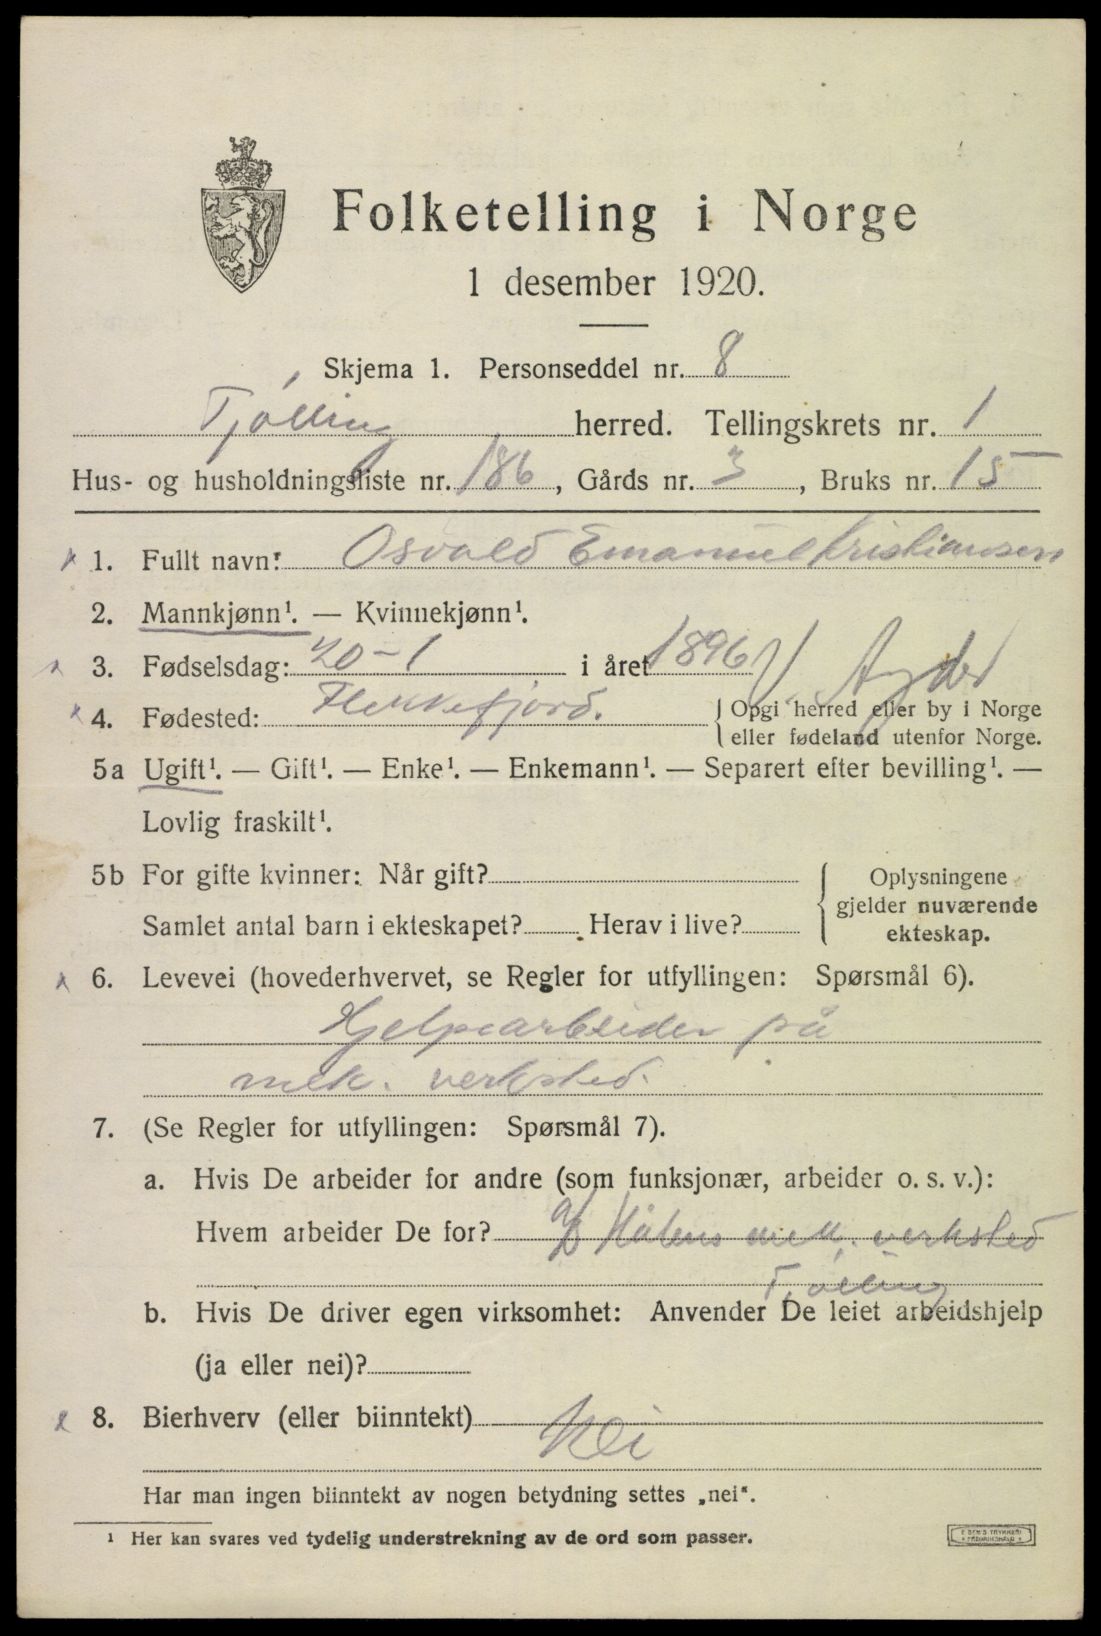 Folketelling i Norge
1 desember 1920.
Skjema 1. Personseddel nr. 8
Tjølling herred. Tellingskrets nr. 1
Hus- og husholdningsliste nr. 186, Gårds nr. 3, Bruks nr. 15
x 1. Fullt navn: Osvald Emanuel Kristiansen
2. Mannkjønn¹. — Kvinnekjønn¹.
x 3. Fødselsdag: 20-1 i året 1896
V. Agder
x 4. Fødested: Flekkefjord. Opgi herred eller by i Norge
eller fødeland utenfor Norge.
5a Ugift¹. — Gift¹. — Enke¹. — Enkemann¹. — Separert efter bevilling¹. —
Lovlig fraskilt¹.
5b For gifte kvinner: Når gift? Oplysningene
gjelder nuværende
Samlet antal barn i ekteskapet? Herav i live?
ekteskap.
x 6. Levevei (hovederhvervet, se Regler for utfyllingen: Spørsmål 6).
Hjelpearbeider på
mek. verksted.
7. (Se Regler for utfyllingen: Spørsmål 7).
a. Hvis De arbeider for andre (som funksjonær, arbeider o. s. v.):
Hvem arbeider De for? mek. verksted
Tjølling
b. Hvis De driver egen virksomhet: Anvender De leiet arbeidshjelp
(ja eller nei)?
x 8. Bierhverv (eller biinntekt) Nei
Har man ingen biinntekt av nogen betydning settes „nei“.
¹ Her kan svares ved tydelig understrekning av de ord som passer.